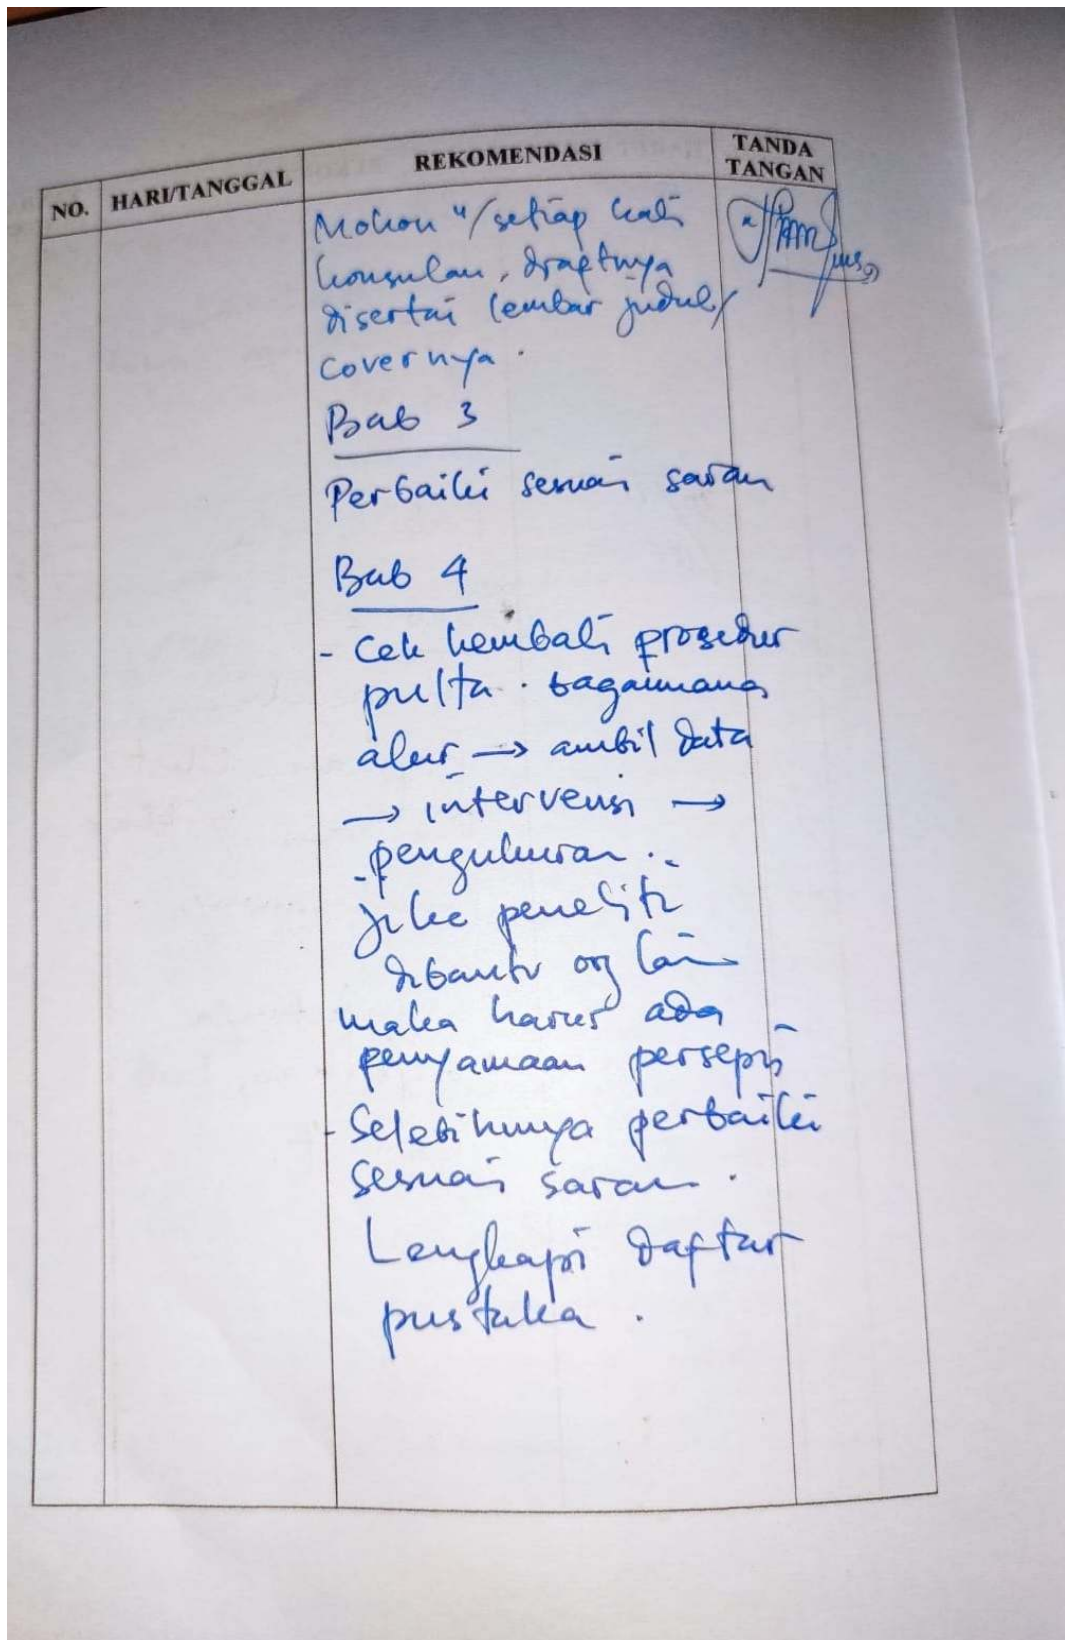 NO. HARI/TANGGAL REKOMENDASI TANDA TANGAN
Mohon u/ setiap kali
konsulan, draftnya
disertai lembar judul/
covernya.
Bab 3
Perbaiki sesuai saran
Bab 4
- Cek kembali prosedur
pulta. bagaimana
alur → ambil data
→ intervensi →
pengukuran..
jika peneliti
dibantu org lain
maka harus ada
penyamaan persepsi
- Selebihnya perbaiki
sesuai saran.
Lengkapi daftar
pustaka.